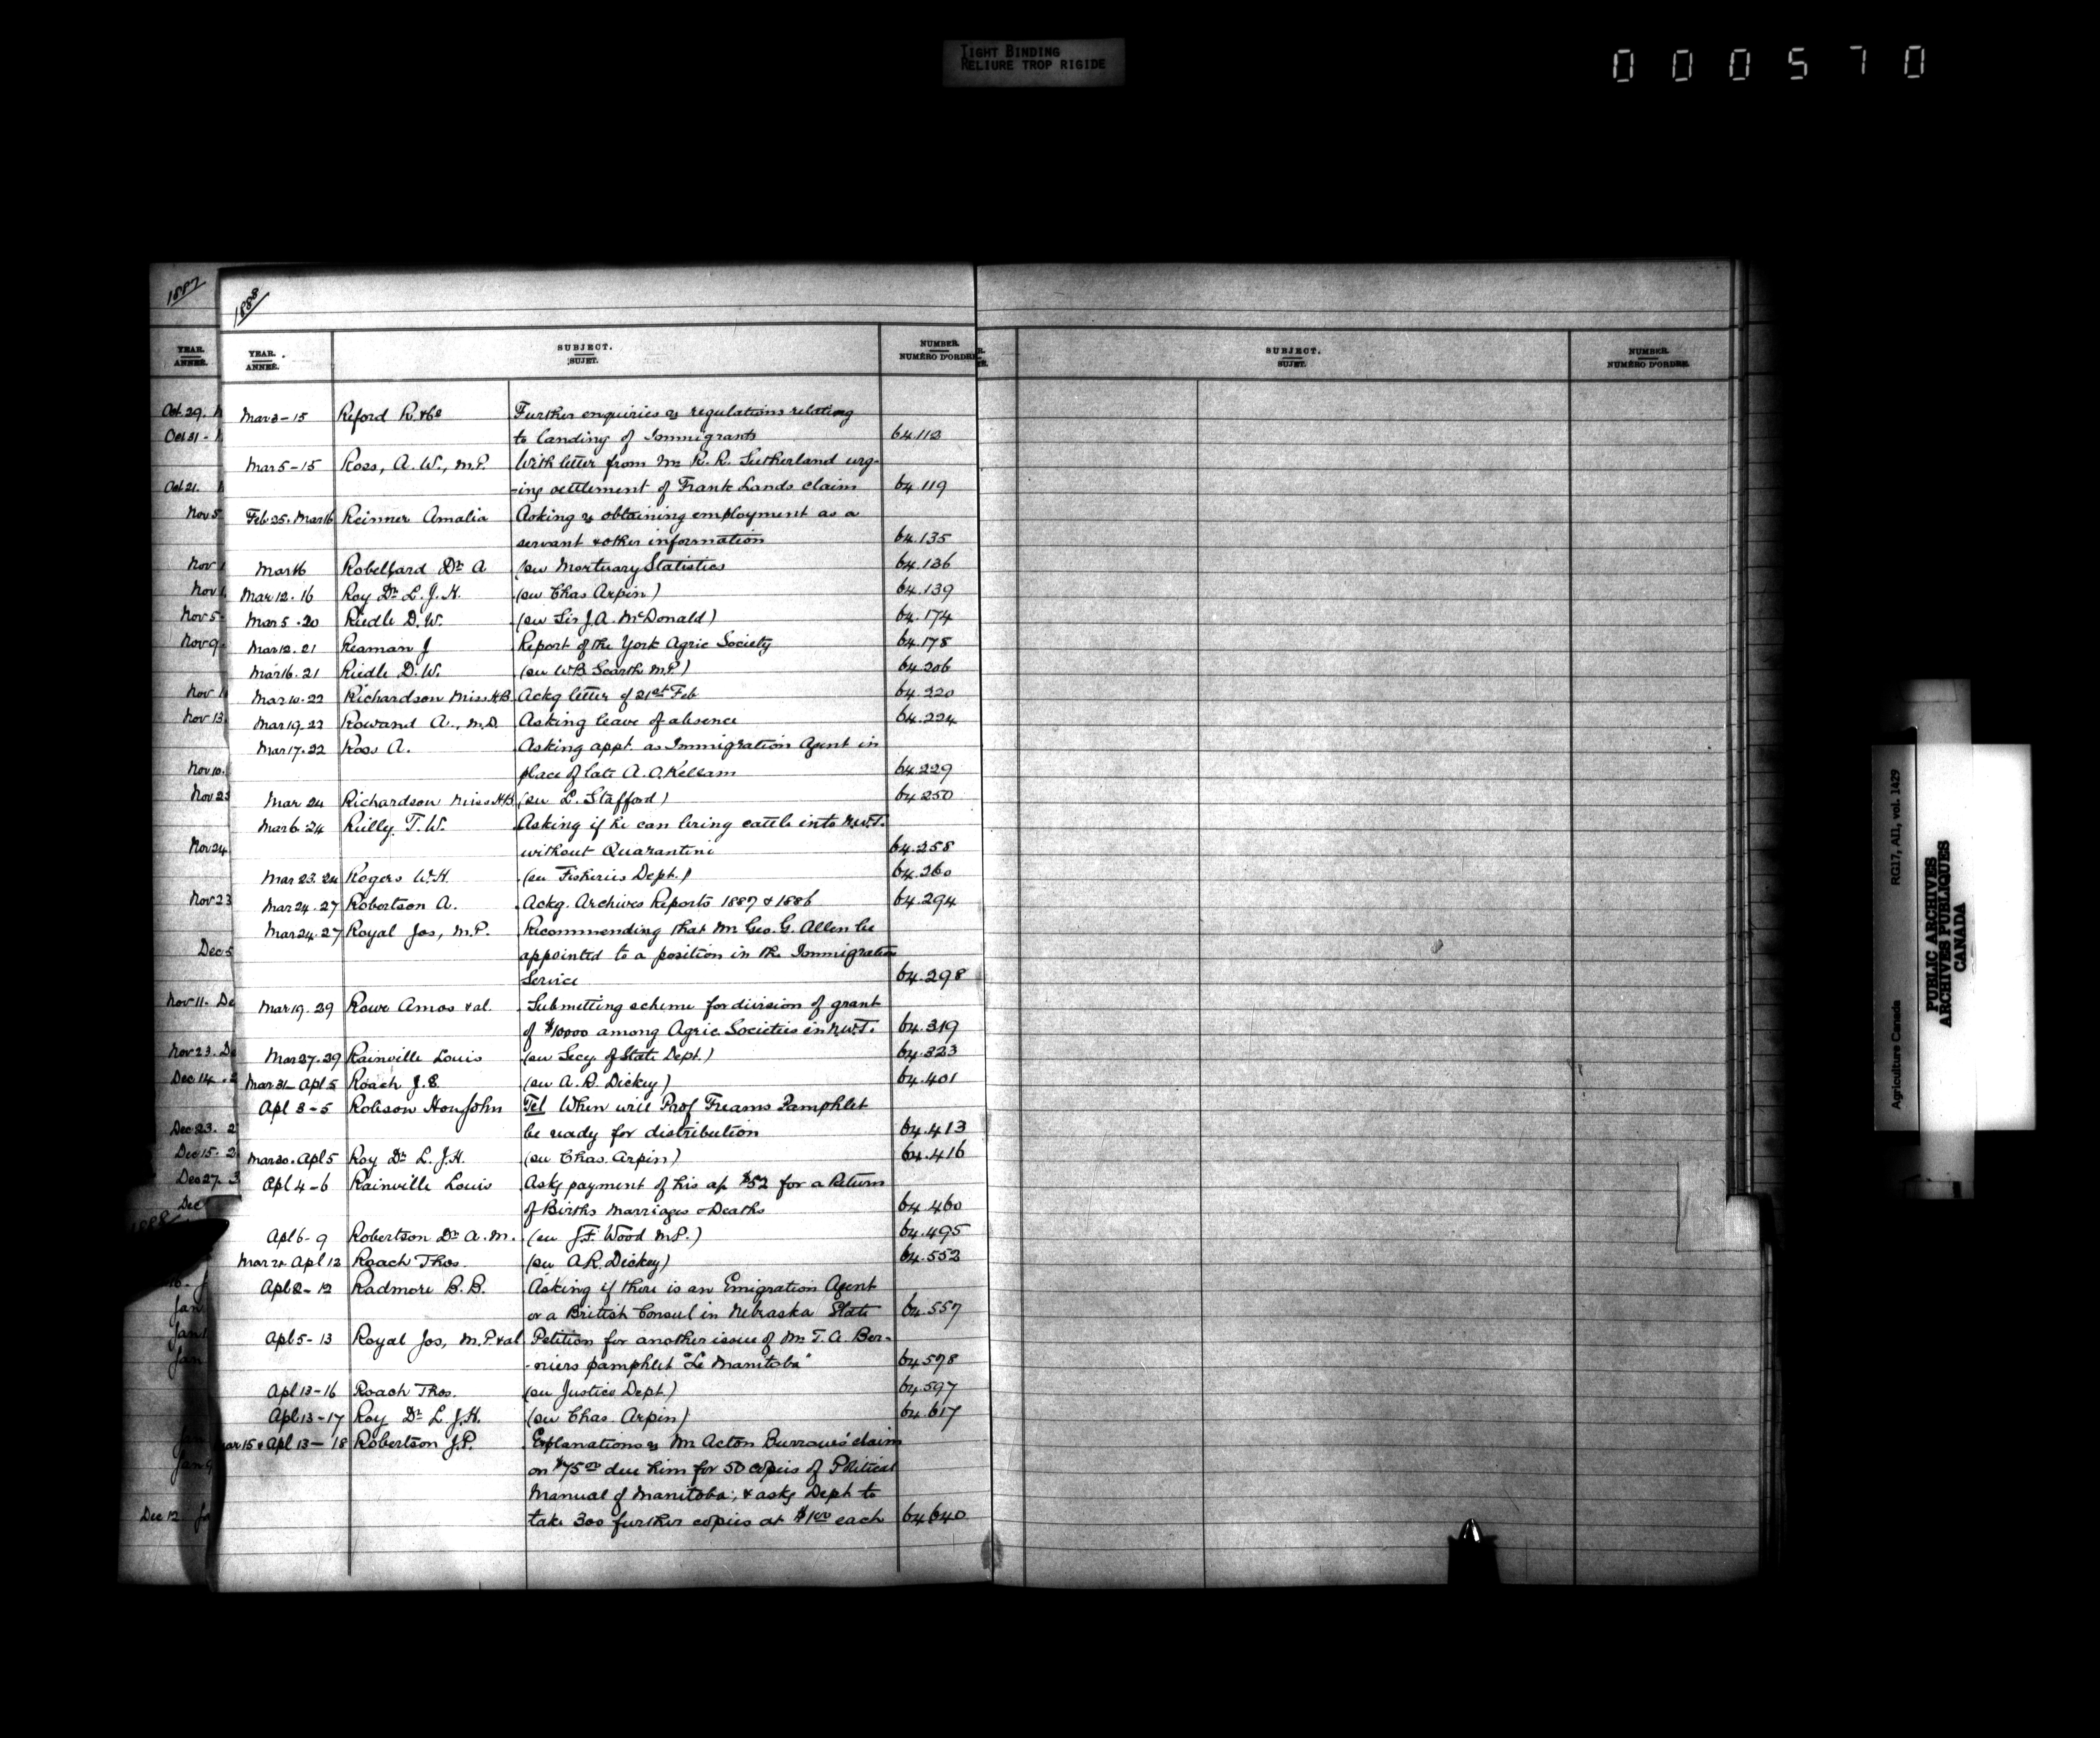 TIGHT BINDING
RELIURE TROP RIGIDE
000570
1887
1888
YEAR. ANNÉE.
YEAR. ANNÉE. SUBJECT. SUJET. NUMBER. NUMÉRO D'ORDRE
SUBJECT. SUJET. NUMBER. NUMÉRO D'ORDRE.
Mar 3-15 Reford R. & Co Further enquiries re regulations relating
to landing of Immigrants 64.112
Mar 5-15 Ross, A. W., M.P. With letter from Mr R. R. Sutherland urg-
-ing settlement of Frank Lands claim 64.119
Feb 25. Mar 16 Reinner Amalia Asking re obtaining employment as a
servant & other information 64.135
Mar 16 Robelfard Dr A (see Mortuary Statistics 64.136
Mar 12. 16 Roy Dr L. J. H. (see Chas Arpin) 64.139
Mar 5. 20 Riedle D. W. (see Sir J. A. McDonald) 64.174
Mar 12. 21 Reaman J Report of the York Agric Society 64.178
Mar 16. 21 Riedle D. W. (see W B Scarth M.P.) 64.206
Mar 10. 22 Richardson Miss H.B. Ackg letter of 21st Feb 64.220
Mar 19. 22 Rowand A., M.D. Asking leave of absence 64.224
Mar 17. 22 Ross A. Asking appt. as Immigration Agent in
place of late A. O. Kellam 64.229
Mar 24 Richardson Miss H.B. (see L. Stafford) 64.250
Mar 6. 24 Reilly T. W. Asking if he can bring cattle into N.W.T.
without Quarantine 64.258
Mar 23. 24 Rogers W. H. (see Fisheries Dept.) 64.260
Mar 24. 27 Robertson A. Ackg. Archives Reports 1887 & 1886 64.294
Mar 24. 27 Royal Jos, M.P. Recommending that Mr Geo. G. Allen be
appointed to a position in the Immigration
Service 64.298
Mar 19. 29 Rowe Amos & al. Submitting scheme for division of grant
of $10000 among Agric. Societies in N.W.T. 64.319
Mar 27. 29 Rainville Louis (see Secy. of State Dept.) 64.323
Mar 31- Apl 5 Roach J. E. (see A. R. Dickey) 64.401
Apl 3-5 Robson Hon John Tel When will Prof Freams Pamphlet
be ready for distribution 64.413
Mar 20. Apl 5 Roy Dr L. J. H. (see Chas. Arpin) 64.416
Apl 4-6 Rainville Louis Asks payment of his a/c $52 for a Return
of Births Marriages & Deaths 64.460
Apl 6-9 Robertson Dr A. M. (see J. F. Wood M.P.) 64.495
Mar 24 Apl 12 Roach Thos. (see A. R. Dickey) 64.552
Apl 2-12 Radmore B. B. Asking if there is an Emigration Agent
or a British Consul in Nebraska State 64.557
Apl 5-13 Royal Jos, M.P. & al Petition for another issue of Mr T. A. Ber-
-niers pamphlet "Le Manitoba" 64.578
Apl 13-16 Roach Thos. (see Justice Dept.) 64.597
Apl 13-17 Roy Dr L. J. H. (see Chas. Arpin) 64.617
Mar 15 & Apl 13-18 Robertson J. P. Explanations re Mr Acton Burrows' claim
on $75.00 due him for 50 copies of Political
Manual of Manitoba; & asks Dept to
take 300 further copies at $1.00 each 64.640
Oct. 29.
Oct 31-
Oct 21.
Nov 5
Nov 1
Nov 1
Nov 5-
Nov 9.
Nov 1
Nov 13
Nov 10.
Nov 23
Nov 24
Nov 23
Dec 5
Nov 11. De
Nov 23. De
Dec 14. 2
Dec 23. 2
Dec 15. 2
Dec 27. 3
Dec
1888
Jan
Jan
Jan
Jan
Dec 12 Ja
Agriculture Canada RG17, AII, vol. 1429
PUBLIC ARCHIVES
ARCHIVES PUBLIQUES
CANADA